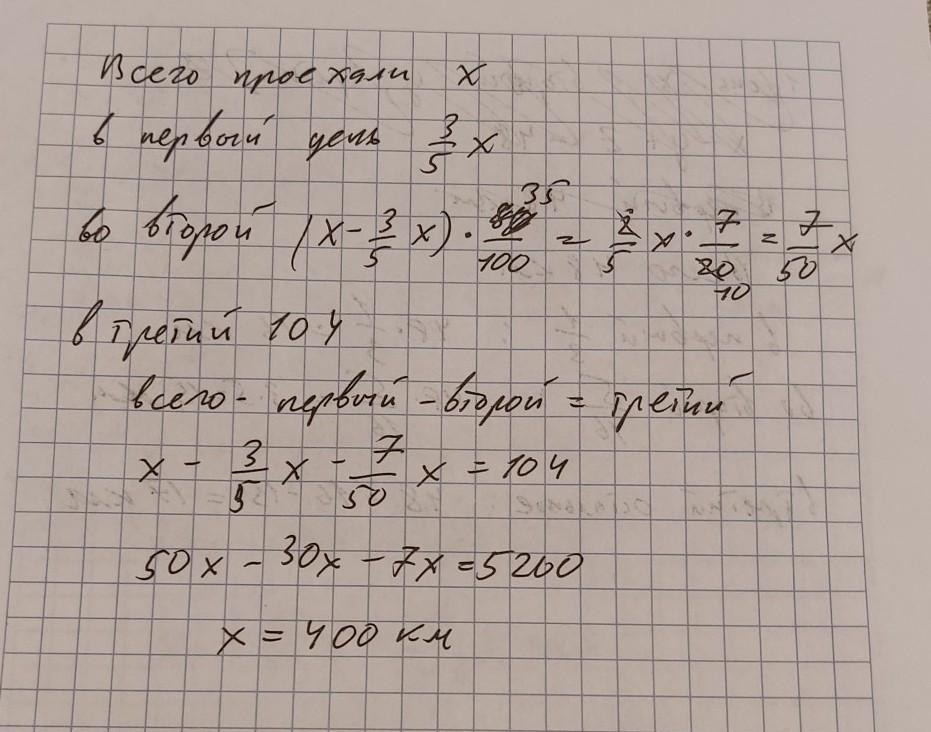 Всего проехали x
в первый день 3/5 x
во второй (x - 3/5 x) · 35/100 = 2/5 x · 7/20 10 = 7/50 x
в третий 104
всего - первый - второй = третий
x - 3/5 x - 7/50 x = 104
50x - 30x - 7x = 5200
x = 400 км